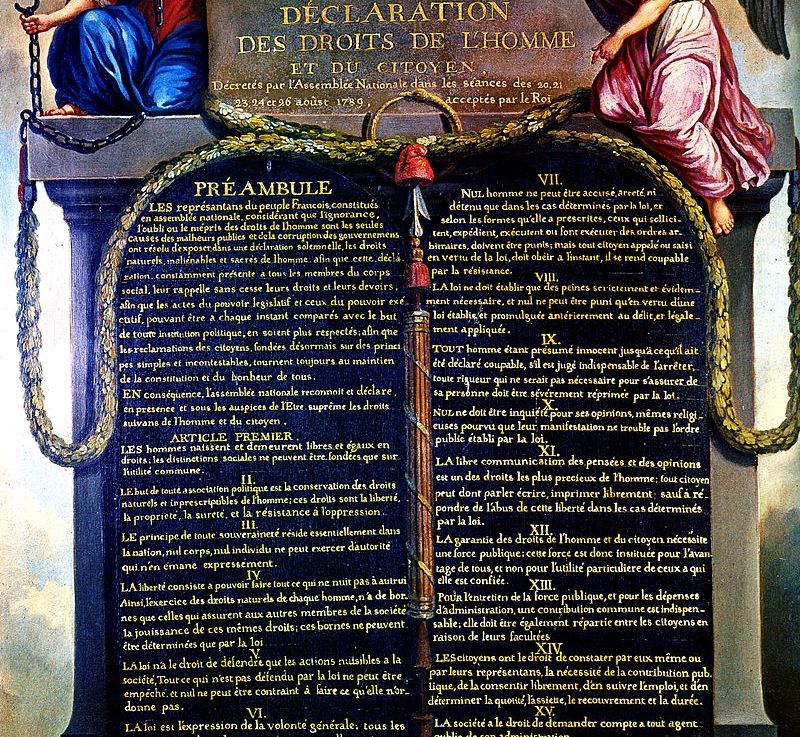 DÉCLARATION
DES DROITS DE L'HOMME
ET DU CITOYEN
Décretés par l'Assemblée Nationale dans les séances des 20. 21
23. 24 et 26 aoust 1789, acceptés par le Roi
PRÉAMBULE
LES représantans du peuple Francois, constitués
en assemblée nationale, considérant que l'ignorance,
l'oubli ou le mépris des droits de l'homme sont les seules
causes des malheurs publics et de la corruption des gouvernemens
ont résolu d'exposer dans une déclaration solemnelle, les droits
naturels, inaliénables et sacrés de l'homme; afin que cette décla
ration, constamment présente a tous les membres du corps
social, leur rappelle sans cesse leurs droits et leurs devoirs;
afin que les actes du pouvoir législatif et ceux du pouvoir exé
cutif, pouvant être a chaque instant comparés avec le but
de toute institution politique, en soient plus respectés; afin que
les reclamations des citoyens, fondées désormais sur des princi
pes simples et incontestables, tournent toujours au maintien
de la constitution et du bonheur de tous.
EN conséquence, l'assemblée nationale reconnoit et déclare,
en presence et sous les auspices de l'Etre suprême les droits
suivans de l'homme et du citoyen.
ARTICLE PREMIER
LES hommes naissent et demeurent libres et égaux en
droits; les distinctions sociales ne peuvent être fondées que sur
l'utilité commune.
II.
LE but de toute association politique est la conservation des droits
naturels et inprescriptibles de l'homme; ces droits sont la liberté,
la propriete, la sureté, et la résistance à l'oppression.
III.
LE principe de toute souveraineté réside essentiellement dans
la nation, nul corps, nul individu ne peut exercer d'autorité
qui n'en émane expressement.
IV.
LA liberté consiste a pouvoir faire tout ce qui ne nuit pas à autrui
Ainsi, l'exercice des droits naturels de chaque homme, n'a de bor-
nes que celles qui assurent aux autres membres de la société
la jouissance de ces mêmes droits; ces bornes ne peuvent
être déterminées que par la loi
V.
LA loi n'a le droit de défendre que les actions nuisibles a la
société, Tout ce qui n'est pas défendu par la loi ne peut être
empéché, et nul ne peut être contraint à faire ce qu'elle n'or-
donne pas.
VI.
LA loi est l'expression de la volonté générale; tous les
VII.
NUL homme ne peut être accusé, areté, ni
détenu que dans les cas déterminés par la loi, et
selon les formes qu'elle a prescrites, ceux qui sollici-
tent, expédient, exécutent ou font exécuter des ordres ar-
bitraires, doivent être punis; mais tout citoyen appelé ou saisi
en vertu de la loi, doit obéir a l'instant, il se rend coupable
par la résistance.
VIII.
LA loi ne doit établir que des peines strictement et évidem-
ment nécessaire, et nul ne peut être puni qu'en vertu d'une
loi établie, et promulguée antérierement au délit, et légale-
ment appliquée.
IX.
TOUT homme étant présumé innocent jusqu'à ce qu'il ait
été déclaré coupable, s'il est jugé indispensable de l'arrêter,
toute rigueur qui ne serait pas nécessaire pour s'assurer de
sa personne doit être sévèrement réprimée par la loi.
X.
NUL ne doit être inquiété pour ses opinions, mêmes religi-
euses pourvu que leur manifestation ne trouble pas l'ordre
public établi par la loi.
XI.
LA libre communication des pensées et des opinions
est un des droits les plus precieux de l'homme; tout citoyen
peut dont parler écrire, imprimer librement; sauf à ré-
pondre de l'abus de cette liberté dans les cas déterminés
par la loi.
XII.
LA garantie des droits de l'homme et du citoyen nécessite
une force publique; cette force est donc instituée pour l'avan-
tage de tous, et non pour l'utilité particuliere de ceux a qui
elle est confiée.
XIII.
POUR l'entretien de la force publique, et pour les dépenses
d'administration, une contribution commune est indispen-
sable; elle doit être également répartie entre les citoyens en
raison de leurs facultées
XIV.
LES citoyens ont le droit de constater par eux même ou
par leurs représentans, la nécessité de la contribution pub-
lique, de la consentir librement, d'en suivre l'emploi, et d'en
déterminer la quotité, l'assiette, le recouvrement et la durée.
XV.
LA société a le droit de demander compte a tout agent
public de son administration.